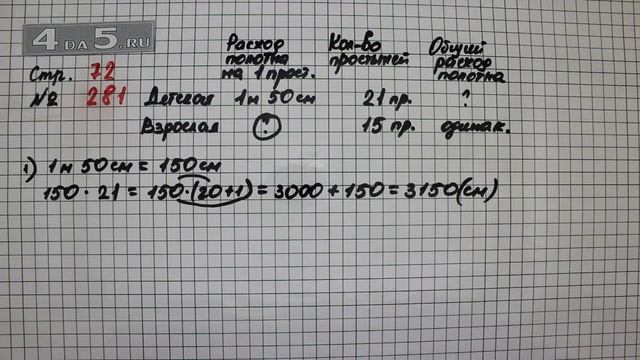 4DA5.RU
Расход полотна на 1 прост.
Кол-во простыней
Общий расход полотна
Стр. 72
№ 281
Детская 1м 50 см 21 пр. ?
Взрослая ? 15 пр. одинак.
1) 1м 50 см = 150 см
150 · 21 = 150·(20+1) = 3000 + 150 = 3150 (см)